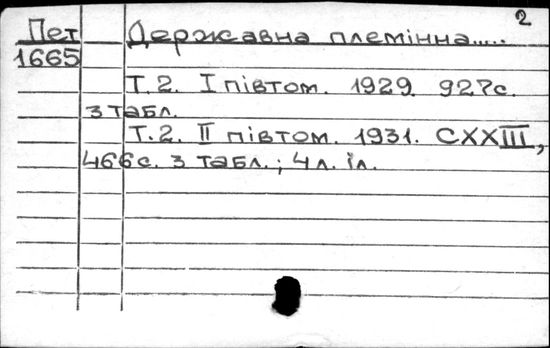 2
Пет Державна племінна.....
1665
Т. 2. I півтом. 1929. 927с.
3 табл.
Т. 2. II півтом. 1931. CXXIII,
466с. 3 табл.; 4л. іл.